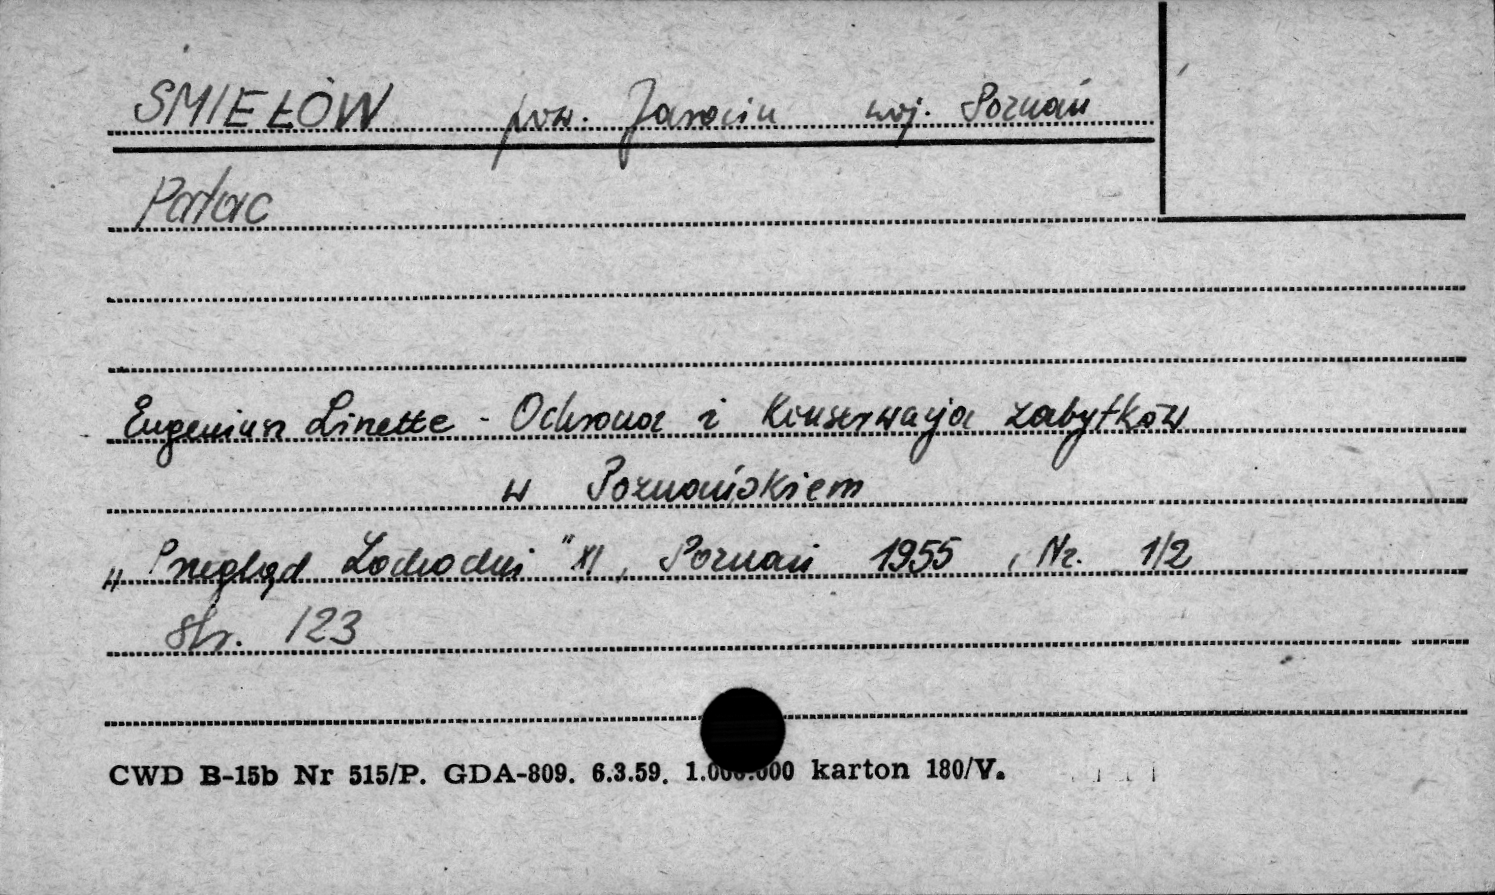 ŚMIEŁÓW pow. Jarocin woj. Poznań
Pałac
Eugeniusz Linette - Ochrona i Konserwacja zabytków
w Poznańskiem
„Przegląd Zachodni" XI, Poznań 1955, Nr. 1/2
str. 123
CWD B-15b Nr 515/P. GDA-809. 6.3.59. 1.000.000 karton 180/V.